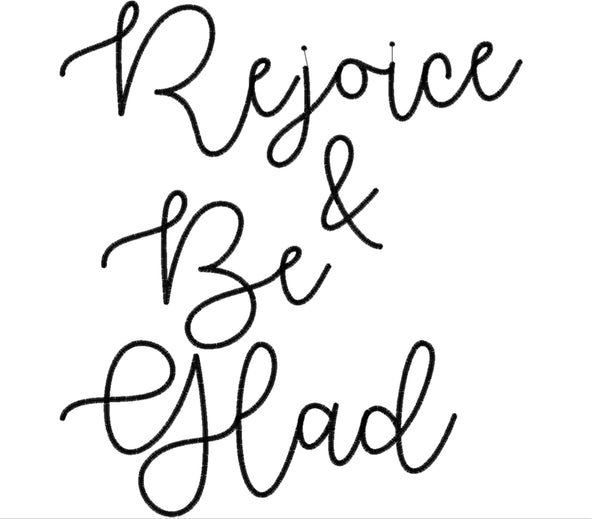 Rejoice
&
Be
Glad